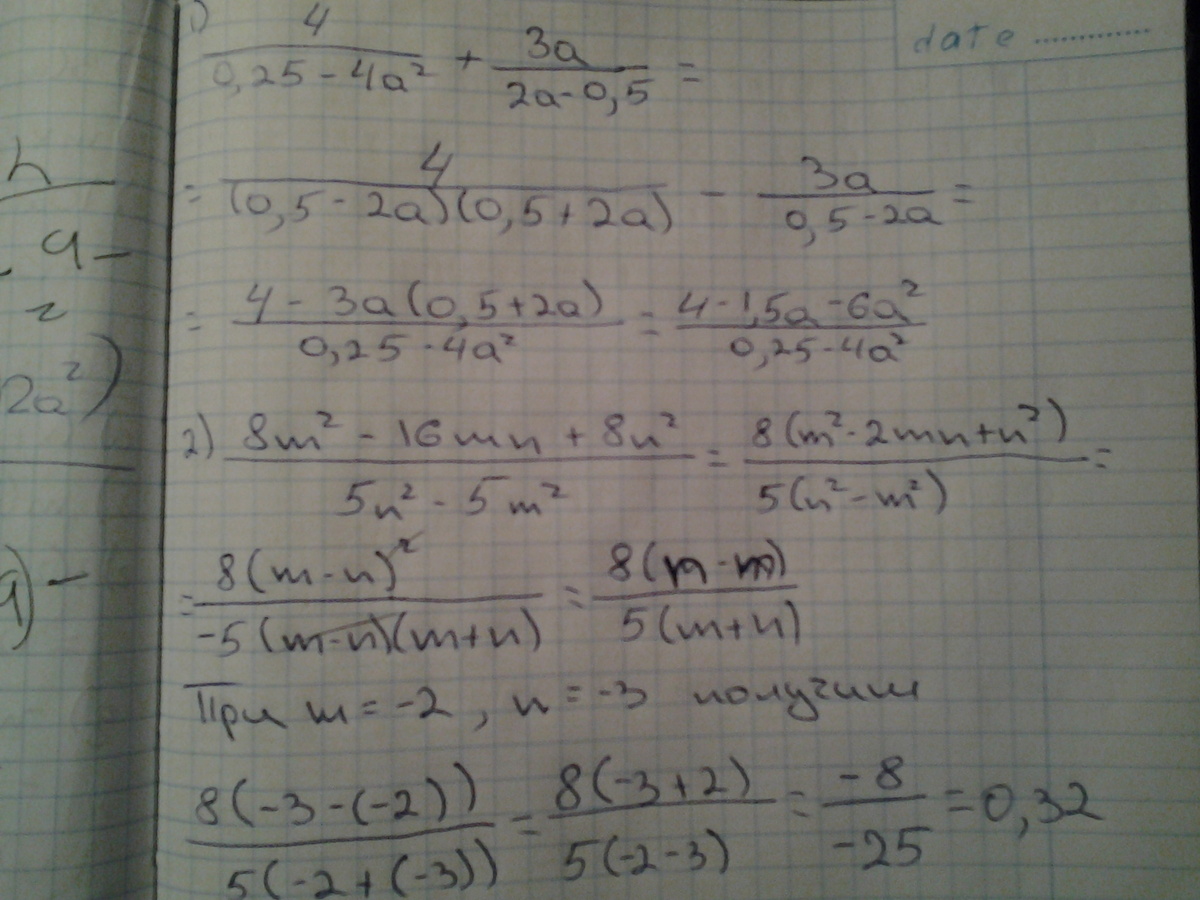 date ..............
1) 4/(0,25 - 4a²) + 3a/(2a - 0,5) =
= 4/((0,5 - 2a)(0,5 + 2a)) - 3a/(0,5 - 2a) =
= (4 - 3a(0,5 + 2a))/(0,25 - 4a²) = (4 - 1,5a - 6a²)/(0,25 - 4a²)
2) (8m² - 16mn + 8n²)/(5n² - 5m²) = 8(m² - 2mn + n²)/(5(n² - m²)) =
= 8(m - n)²/(-5(m - n)(m + n)) = 8(n - m)/(5(m + n))
При m = -2, n = -3 получим
8(-3 - (-2))/(5(-2 + (-3))) = 8(-3 + 2)/(5(-2 - 3)) = -8/-25 = 0,32
2a²)